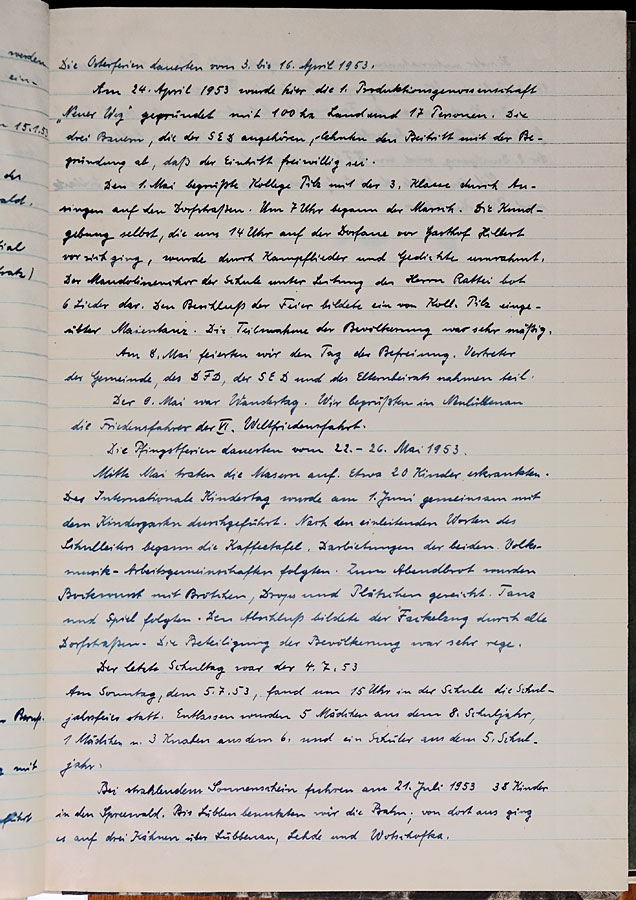 werden
ein-
15.1.53
des
ald.
ial
ratz)
Beruf.
mit
führt
Die Osterferien dauerten vom 3. bis 16. April 1953.
Am 24. April 1953 wurde hier die 1. Produktionsgenossenschaft
„Neuer Weg" gegründet mit 100 ha Land und 17 Personen. Die
drei Bauern, die der SED angehören, lehnten den Beitritt mit der Be-
gründung ab, daß der Eintritt freiwillig sei.
Den 1. Mai begrüßte Kollege Pilz mit der 3. Klasse durch An-
singen auf den Dorfstraßen. Um 7 Uhr begann der Marsch. Die Kund-
gebung selbst, die um 14 Uhr auf der Dorfaue vor Gasthof Hilbert
vor sich ging, wurde durch Kampflieder und Gedichte umrahmt.
Der Mandolinenchor der Schule unter Leitung des Herrn Rattei bot
6 Lieder dar. Den Beschluß der Feier bildete ein von Koll. Pilz einge-
übter Maientanz. Die Teilnahme der Bevölkerung war sehr mäßig.
Am 8. Mai feierten wir den Tag der Befreiung. Vertreter
der Gemeinde, des DFD, der SED und des Elternbeirats nahmen teil.
Der 9. Mai war Wandertag. Wir begrüßten in Neulübbenau
die Friedensfahrer der VI. Weltfriedensfahrt.
Die Pfingstferien dauerten vom 22.-26. Mai 1953.
Mitte Mai traten die Masern auf. Etwa 20 Kinder erkrankten.
Der Internationale Kindertag wurde am 1. Juni gemeinsam mit
dem Kindergarten durchgeführt. Nach den einleitenden Worten des
Schulleiters begann die Kaffeetafel. Darbietungen der beiden Volks-
musik-Arbeitsgemeinschaften folgten. Zum Abendbrot wurden
Bockwurst mit Brötchen, Drops und Plätzchen gereicht. Tanz
und Spiel folgten. Den Abschluß bildete der Fackelzug durch alle
Dorfstraßen. Die Beteiligung der Bevölkerung war sehr rege.
Der letzte Schultag war der 4.7.53
Am Sonntag, dem 5.7.53, fand um 15 Uhr in der Schule die Schul-
jahrsfeier statt. Entlassen wurden 5 Mädchen aus dem 8. Schuljahr,
1 Mädchen u. 3 Knaben aus dem 6. und ein Schüler aus dem 5. Schul-
jahr.
Bei strahlendem Sonnenschein fuhren am 21. Juli 1953 38 Kinder
in den Spreewald. Bis Lübben benutzten wir die Bahn; von dort aus ging
es auf drei Kähnen über Lübbenau, Lehde und Wotschofka.